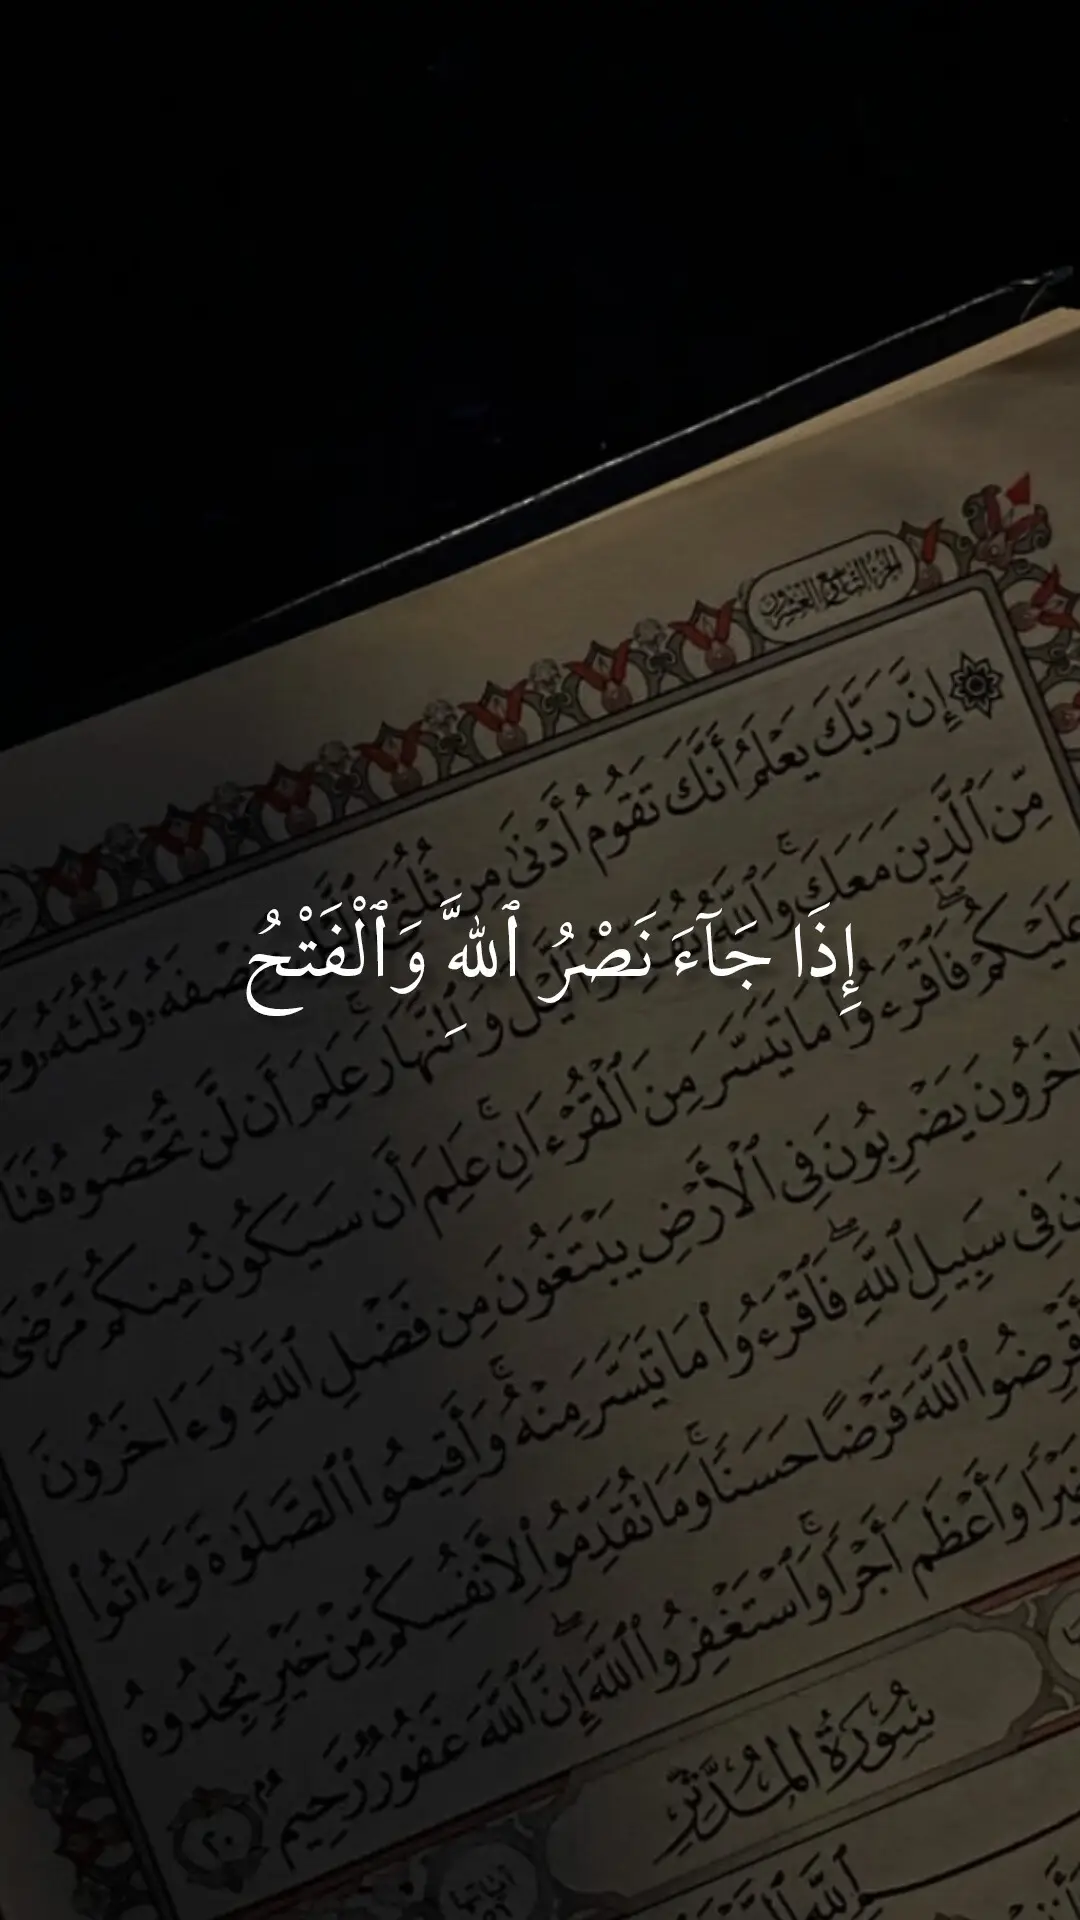 الجزء التاسع والعشرون
إِنَّ رَبَّكَ يَعْلَمُ أَنَّكَ تَقُومُ أَدْنَىٰ مِن ثُلُثَىِ
وَنِصْفَهُۥ وَثُلُثَهُۥ
مِّنَ ٱلَّذِينَ مَعَكَ ۚ وَٱللَّهُ يُقَدِّرُ ٱلَّيْلَ وَٱلنَّهَارَ ۚ عَلِمَ أَن لَّن تُحْصُوهُ
إِذَا جَآءَ نَصْرُ ٱللَّهِ وَٱلْفَتْحُ
عَلَيْكُمْ ۖ فَٱقْرَءُوا۟ مَا تَيَسَّرَ مِنَ ٱلْقُرْءَانِ ۚ عَلِمَ أَن سَيَكُونُ مِنكُم مَّرْضَىٰ
يَضْرِبُونَ فِى ٱلْأَرْضِ يَبْتَغُونَ مِن فَضْلِ ٱللَّهِ ۙ وَءَاخَرُونَ
فِى سَبِيلِ ٱللَّهِ ۖ فَٱقْرَءُوا۟ مَا تَيَسَّرَ مِنْهُ ۚ وَأَقِيمُوا۟ ٱلصَّلَوٰةَ وَءَاتُوا۟
ٱللَّهَ قَرْضًا حَسَنًا ۚ وَمَا تُقَدِّمُوا۟ لِأَنفُسِكُم مِّنْ خَيْرٍ تَجِدُوهُ
وَأَعْظَمَ أَجْرًا ۚ وَٱسْتَغْفِرُوا۟ ٱللَّهَ ۖ إِنَّ ٱللَّهَ غَفُورٌ رَّحِيمٌۢ ٢٠
سُورَةُ المُدَّثِّرِ